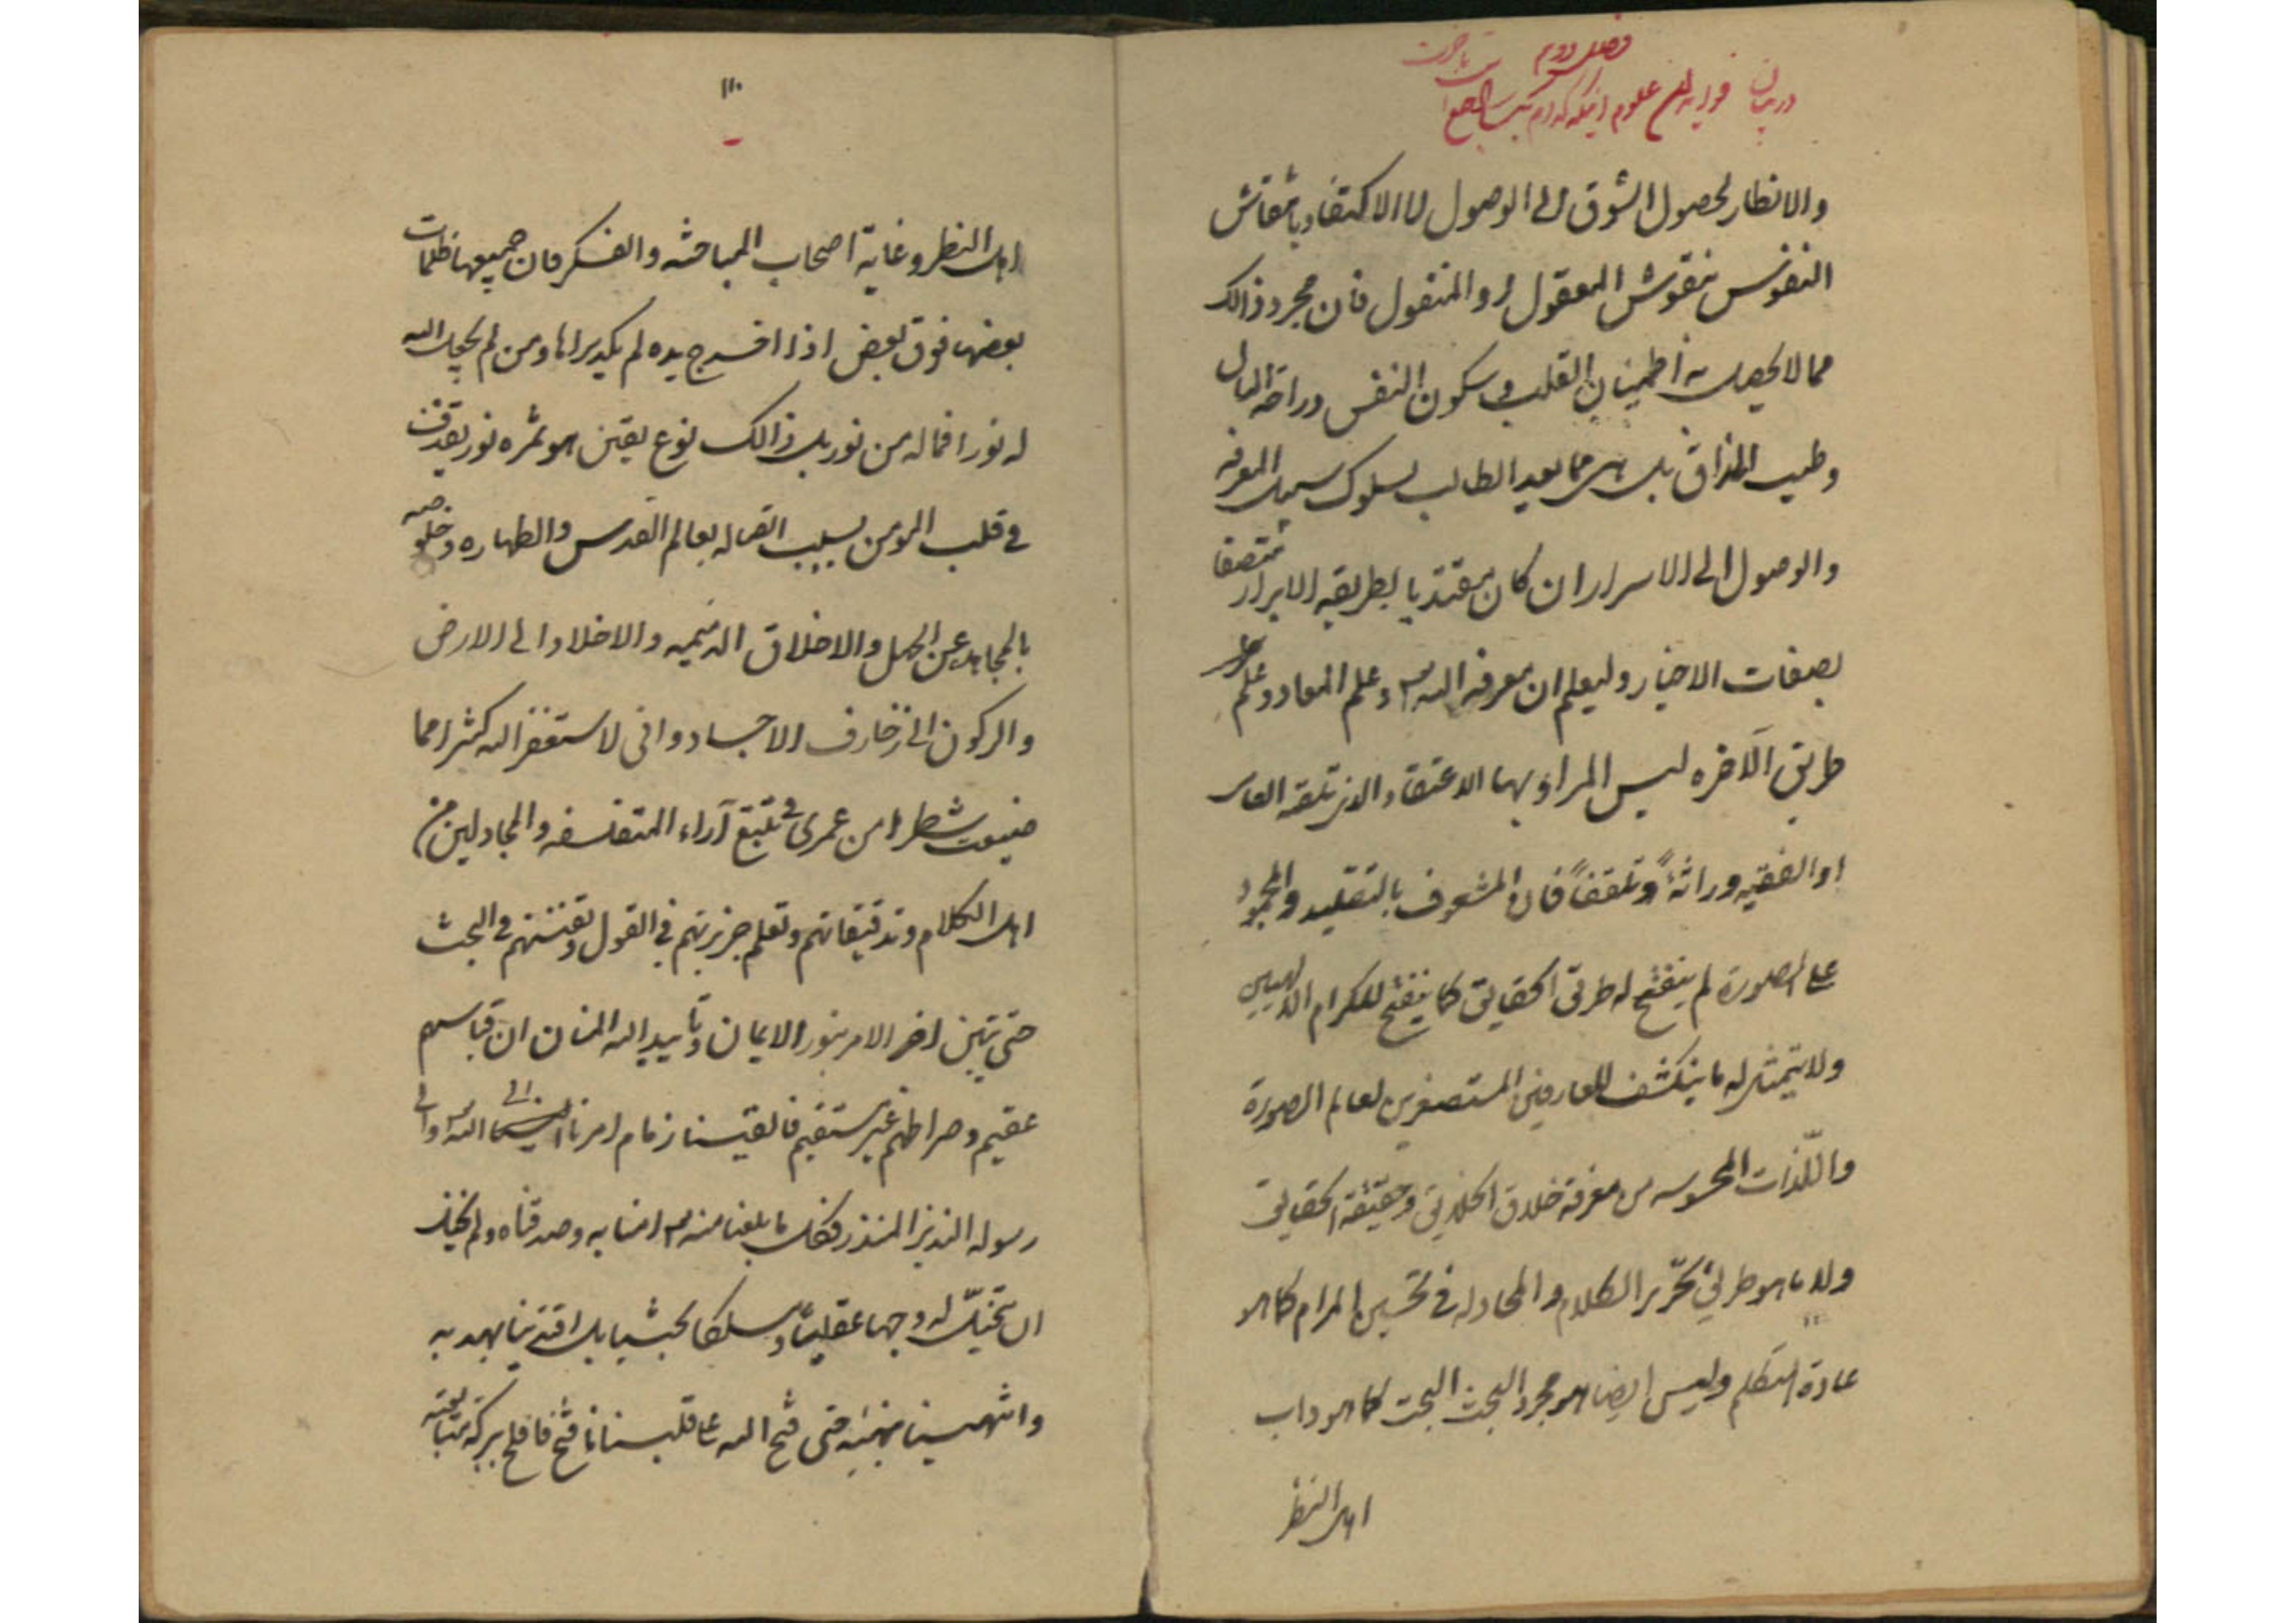 فصل دوم
در بیان علوم
والانظار لحصول الشوق الى الوصول لا الاكتفاء بانتقاش
النفوس بنقوش المعقول او المنقول فان مجرد ذالك
مما لا يحصل به اطمينان القلب وسكون النفس وراحة البال
وطيب المذاق بل هي مما يعد الطالب لسلوك سبيل المعرفه
والوصول الى الاسرار ان كان مقتديا بطريقه الابرار متصفا
بصفات الاخيار وليعلم ان معرفه الله وعلم المعاد وعلم
طريق الآخره ليس المراد بها الاعتقاد الذى تلقه العامى
او الفقيه وراثةً وتلقفاً فان المشعوف بالتقليد والجمود
على الصورة لم ينفتح له طريق الحقايق كما ينفتح للكرام الالهيين
ولا يتمثل له ما ينكشف للعارفين المستصغرين لعالم الصورة
واللّذات المحسوسه من معرفة خلاق الخلايق وحقيقة الحقايق
ولا ما هو طريق تحرير الكلام والمجادله فى تحسين المرام كما هو
عادة المتكلم وليس ايضا هو مجرد البحث البحت كما هو داب
اهل النظر
١١٠
اهل النظر وغاية اصحاب المباحثه والفكر فان جميعها ظلمات
بعضها فوق بعض اذا اخرج يده لم يكد يراها ومن لم يجعل الله
له نورا فما له من نور بل ذالك نوع يقين هو ثمره نور يقذف
فى قلب المومن بسبب اتصاله بعالم القدس والطهاره وخلوصه
بالمجاهده عن الجهل والاخلاق الذميمه والاخلاد الى الارض
والركون الى زخارف الاجساد وانى لاستغفر الله كثيرا مما
ضيعت شطرا من عمرى فى تتبع آراء المتفلسفه والمجادلين من
اهل الكلام وتدقيقاتهم وتعلم جربزتهم فى القول وتفننهم فى البحث
حتى تبين اخر الامر بنور الايمان وتأييد الله المنان ان قياسهم
عقيم وصراطهم غير مستقيم فالقينا زمام امرنا اليه الله والى
رسوله النذير المنذر فكل ما بلغنا منه امنا به وصدقناه ولم نحتل
ان نخيّل له وجها عقلياً ومسلكا بحثيا بل اقتدينا بهديه
وانتهينا بنهيه حتى فتح الله على قلبنا ما فتح فافلح ببركه متابعته